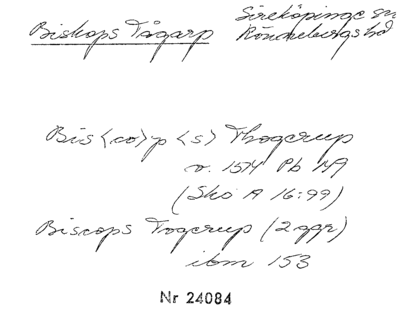 Biskops Tågarp
Sireköpinge sn
Rönnebergs hd
Bis<co>p <s> Thogerup
v. 1514 Pb 149
(Skö A 16:99)
Biscops Togerup (2 ggr)
ibm 153
Nr 24084